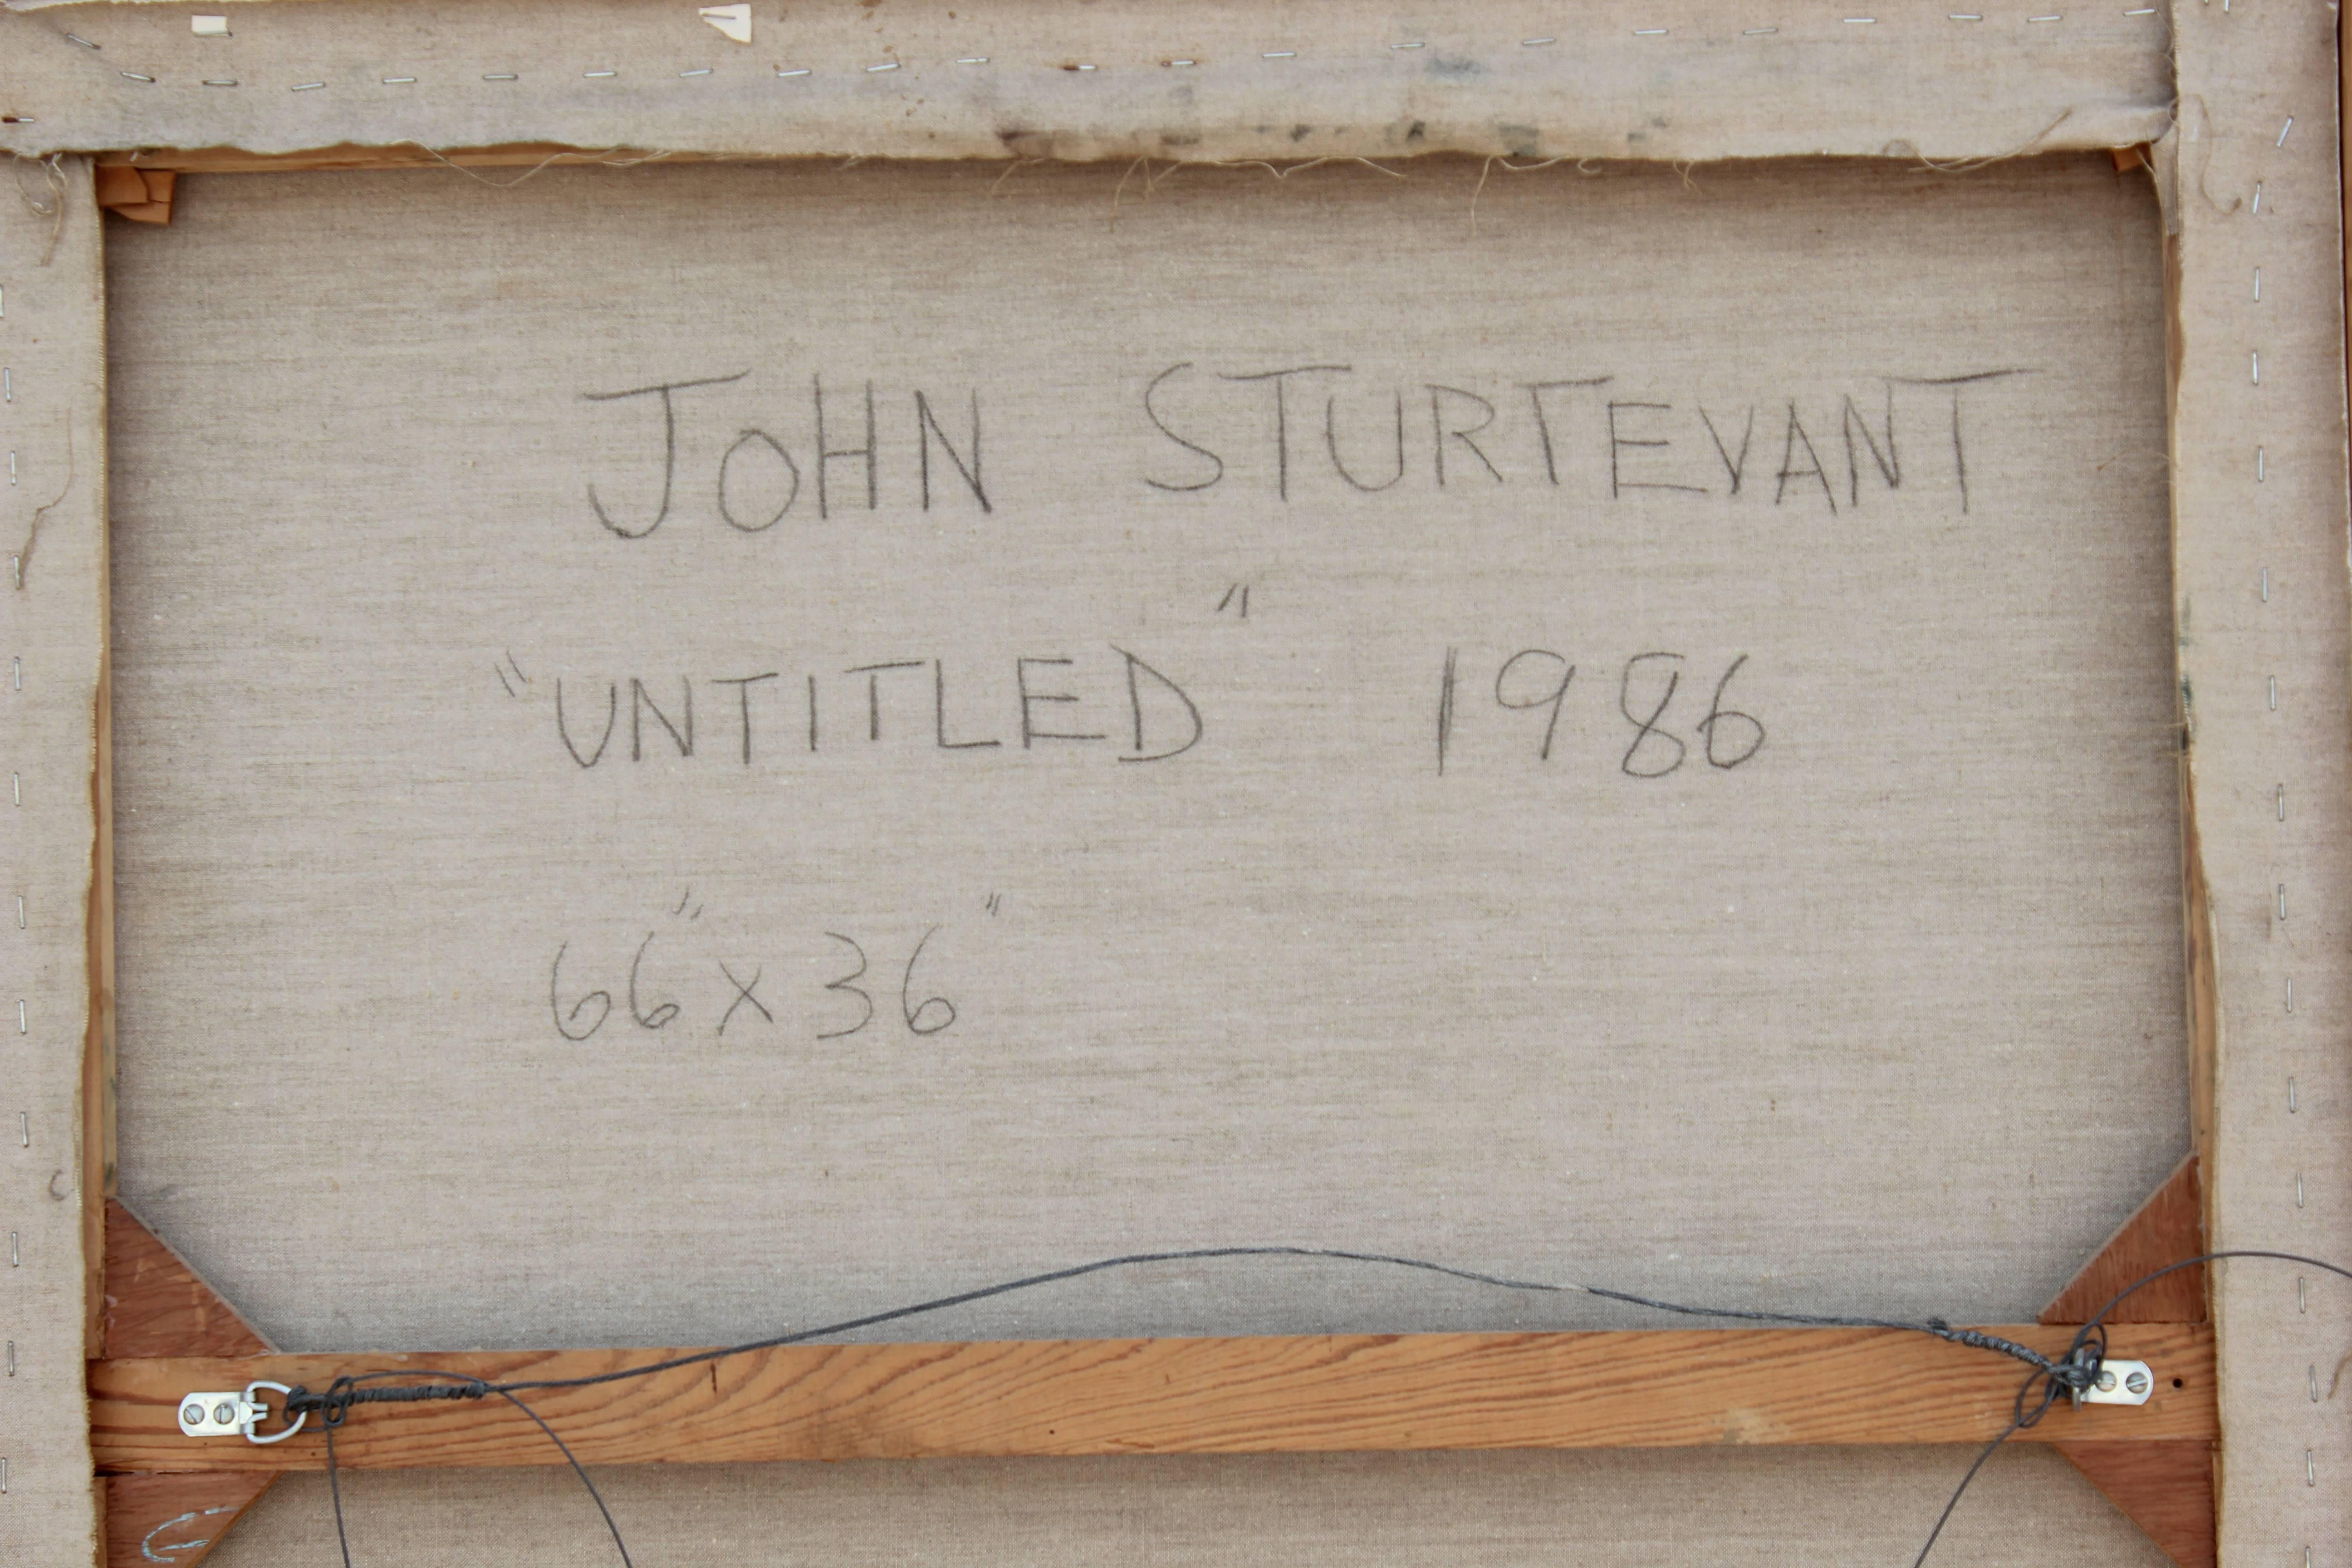 JOHN STURTEVANT
"UNTITLED" 1986
66" x 36"